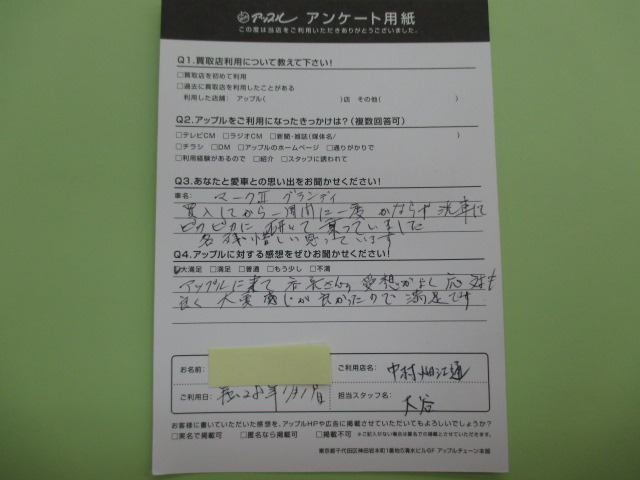 アップル アンケート用紙
この度は当店をご利用いただきありがとうございました。
Q1.買取店利用について教えて下さい!
□買取店を初めて利用
□過去に買取店を利用したことがある
利用した店舗: アップル( )店 その他( )
Q2.アップルをご利用になったきっかけは?(複数回答可)
□テレビCM □ラジオCM □新聞・雑誌(媒体名/ )
□チラシ □DM □アップルのホームページ □通りがかりで
□利用経験があるので □紹介 □スタッフに誘われて
Q3.あなたと愛車との思い出をお聞かせください!
車名: マークⅡ グランデ
買入してから一週間に一度 かならず 洗車して
ピカピカに 研いて 乗っていました
名残惜しい思っています
Q4.アップルに対する感想をぜひお聞かせください!
☑大満足 □満足 □普通 □もう少し □不満
アップルに来て 愛想がよく 応対も
良く 大変感じが良かったので 満足です
お名前:
ご利用店名: 中村
ご利用日: 28年
担当スタッフ名: 大谷
お客様に書いていただいた感想を、アップルHPや広告に掲載させていただいてもよろしいでしょうか?
□実名で掲載可 □匿名なら掲載可 □掲載不可 ※ご記入がない場合は匿名での掲載とさせていただきます。
東京都千代田区神田岩本町1番地5清水ビル6F アップルチェーン本部